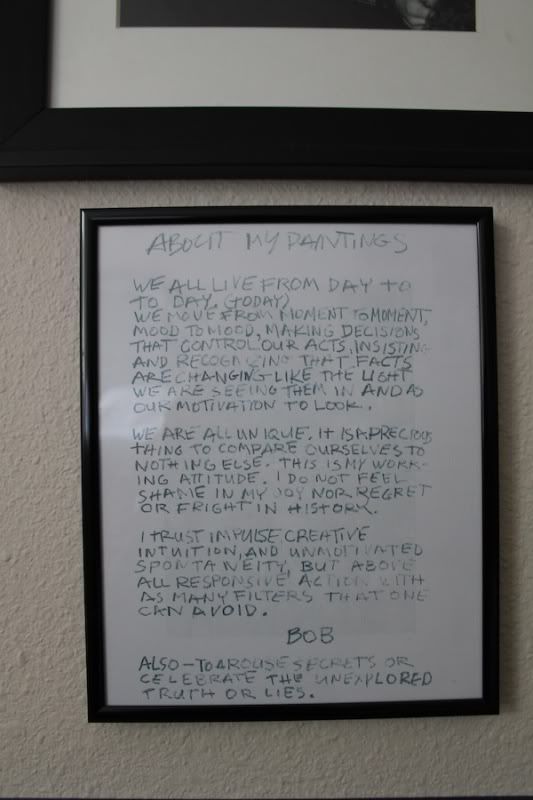 ABOUT MY PAINTINGS
WE ALL LIVE FROM DAY TO
TO DAY. (TODAY)
WE MOVE FROM MOMENT TO MOMENT,
MOOD TO MOOD, MAKING DECISIONS
THAT CONTROL OUR ACTS, INSISTING
AND RECOGNIZING THAT FACTS
ARE CHANGING LIKE THE LIGHT
WE ARE SEEING THEM IN AND AS
OUR MOTIVATION TO LOOK.
WE ARE ALL UNIQUE. IT IS A PRECIOUS
THING TO COMPARE OURSELVES TO
NOTHING ELSE. THIS IS MY WORK-
ING ATTITUDE. I DO NOT FEEL
SHAME IN MY JOY NOR REGRET
OR FRIGHT IN HISTORY.
I TRUST IMPULSE CREATIVE
INTUITION, AND UNMOTIVATED
SPONTANEITY, BUT ABOVE
ALL RESPONSIVE ACTION WITH
AS MANY FILTERS THAT ONE
CAN AVOID.
BOB
ALSO-TO AROUSE SECRETS OR
CELEBRATE THE UNEXPLORED
TRUTH OR LIES.